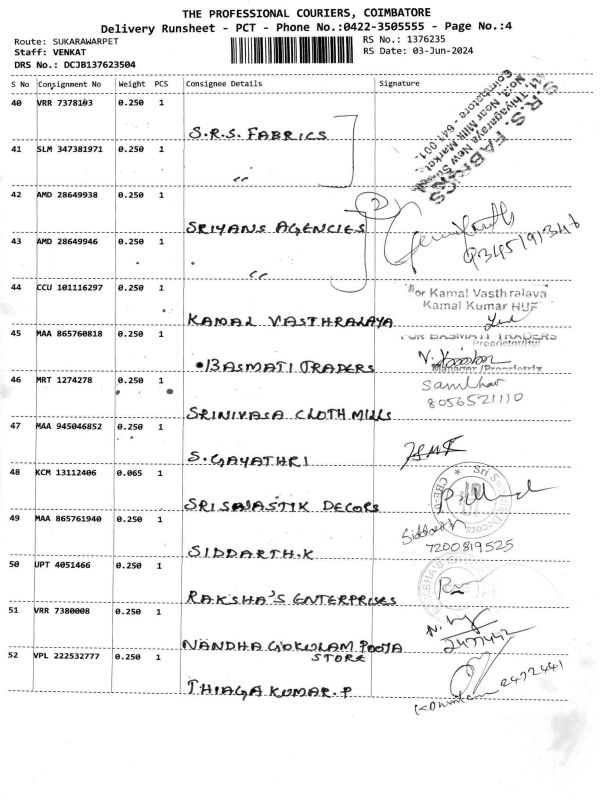 THE PROFESSIONAL COURIERS, COIMBATORE
Delivery Runsheet - PCT - Phone No.:0422-3505555 - Page No.:4
Route: SUKARAWARPET
RS No.: 1376235
Staff: VENKAT
RS Date: 03-Jun-2024
DRS No.: DCJB137623504
S No Consignment No Weight PCS Consignee Details Signature
40 VRR 7378103 0.250 1
S.R.S. FABRICS
S.R.S. FABRICS
Thiyagaraya New Street
No:3, Near Milk Market,
Coimbatore - 641 001.
41 SLM 347381971 0.250 1
"
42 AMD 28649938 0.250 1
2
SRIYANS AGENCIES
43 AMD 28649946 0.250 1
9345191346
"
44 CCU 101116297 0.250 1
For Kamal Vasthralaya
Kamal Kumar HUF
KAMAL VASTHRALAYA
45 MAA 865760818 0.250 1
FOR BASMATI TRADERS
BASMATI TRADERS
Manager/Proprietrix
46 MRT 1274278 0.250 1
Sambhav
8056521110
SRINIVASA CLOTH MILLS
47 MAA 945046852 0.250 1
S. GAYATHRI
48 KCM 13112406 0.065 1
SRI SWASTIK DECORS
49 MAA 865761940 0.250 1
Siddarth
7200819525
SIDDARTH.K
50 UPT 4051466 0.250 1
RAKSHA'S ENTERPRISES
51 VRR 7380008 0.250 1
NANDHA GOKULAM POOJA
STORE
52 VPL 222532777 0.250 1
2472441
THIAGA KUMAR.P